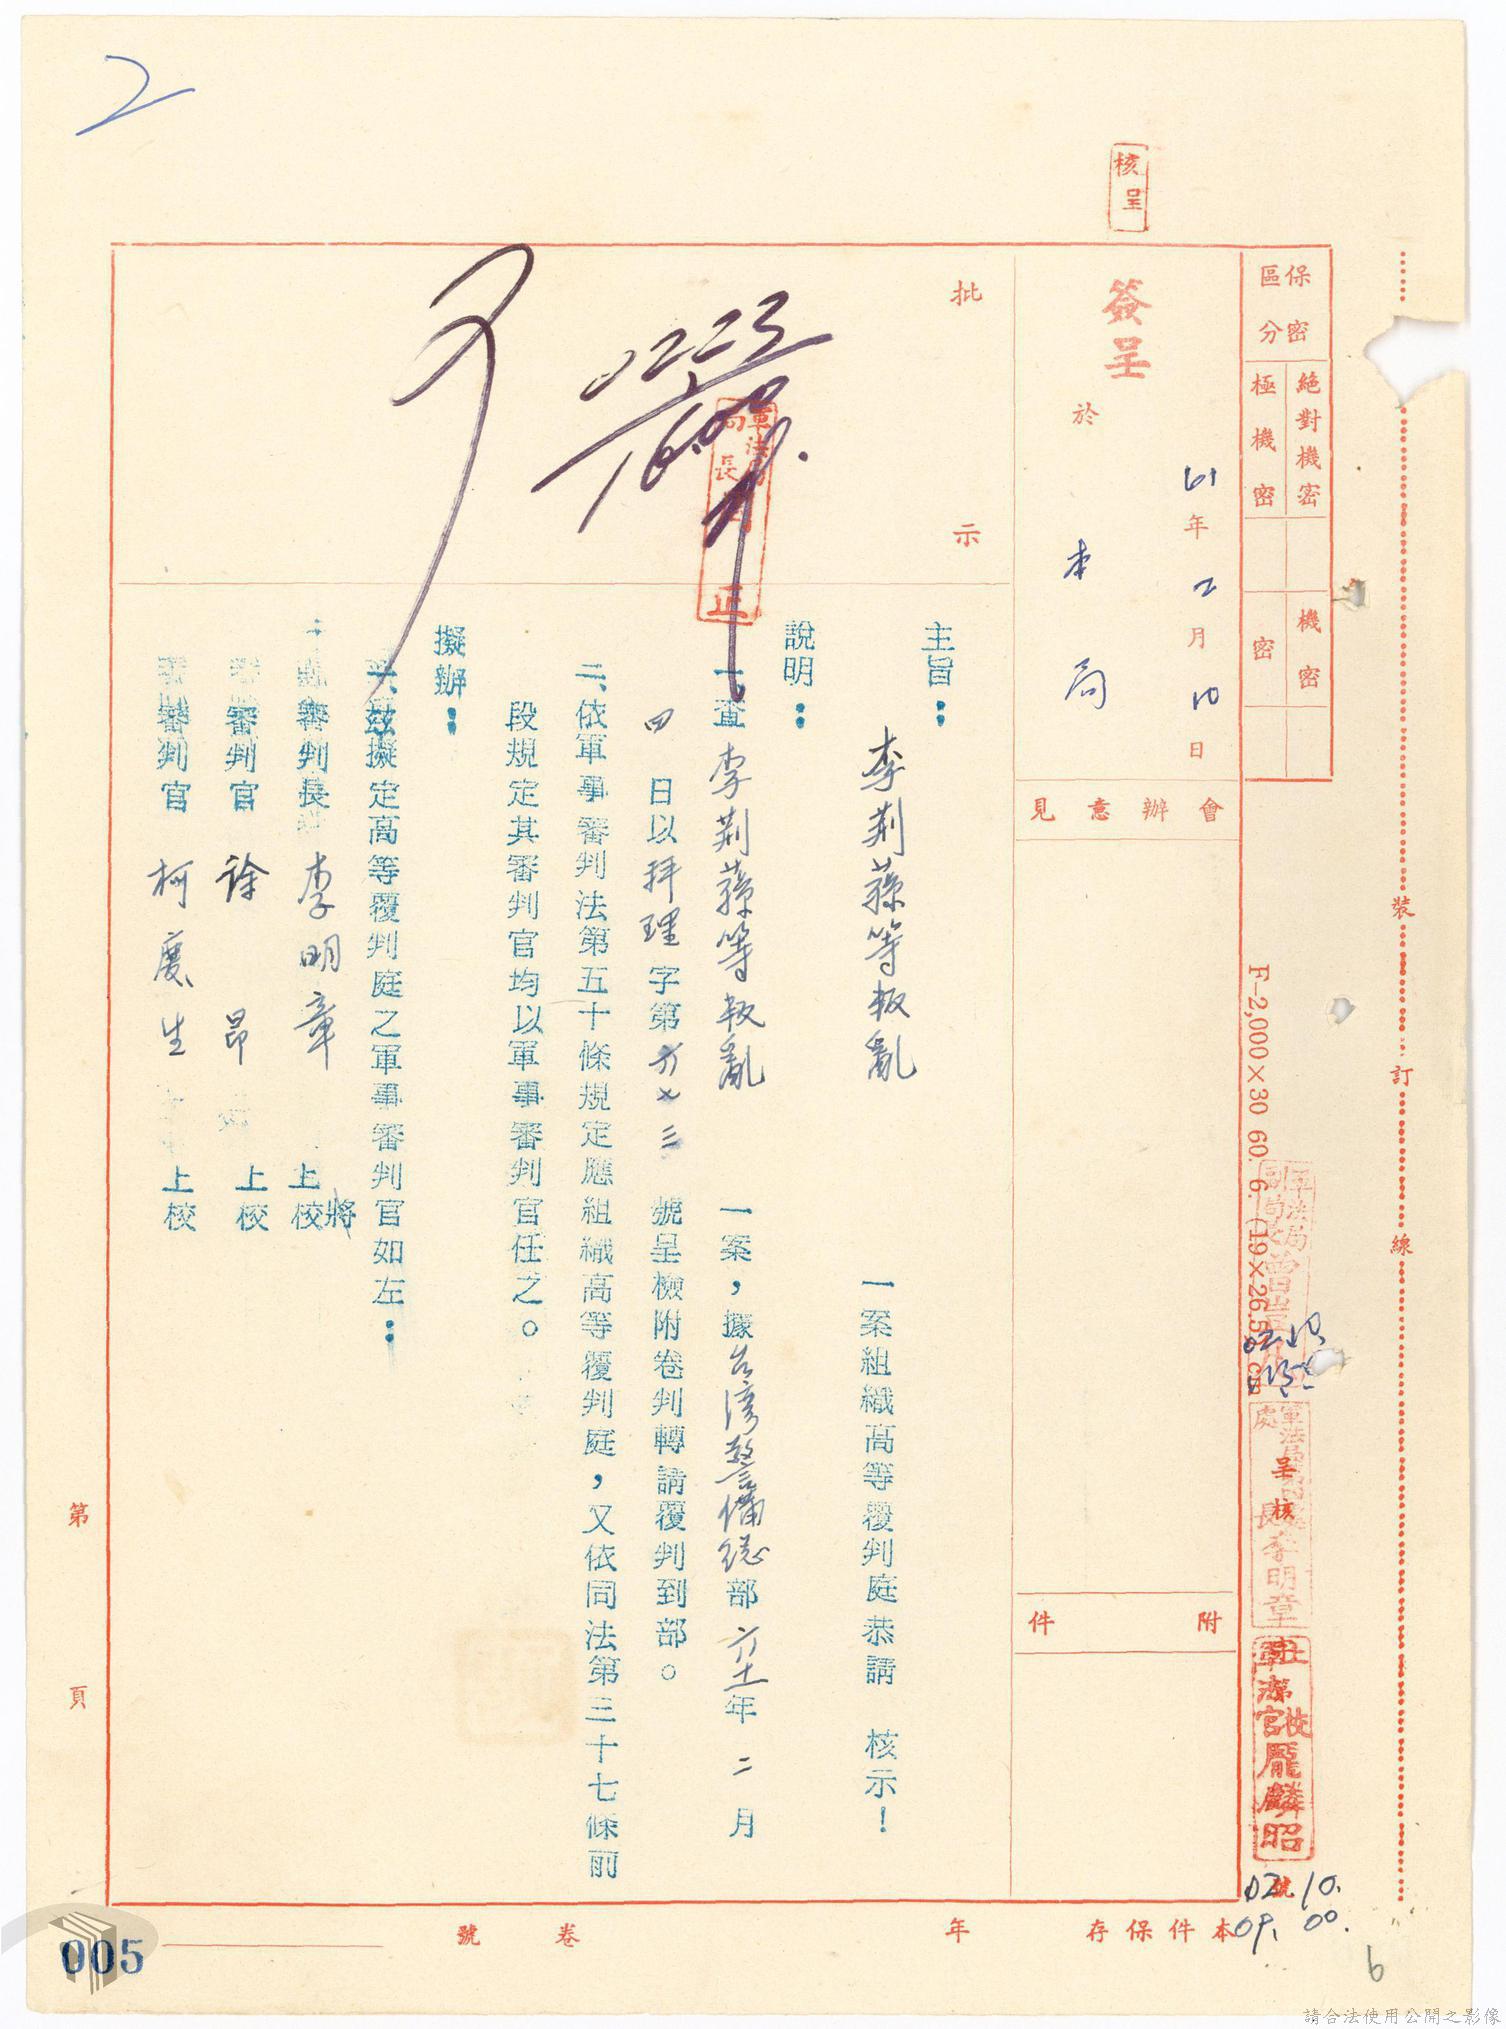 核呈
保密區分
絕對機密
極機密
機密
密
簽呈
61年2月10日
於 本局
會辦意見
附件
批示
可
主旨：
李荊蓀等叛亂 一案組織高等覆判庭恭請 核示！
說明：
一、查李荊蓀等叛亂 一案，據台灣警備總部六十一年二月
四日以 理字第 號呈檢附卷判轉請覆判到部。
二、依軍事審判法第五十條規定應組織高等覆判庭，又依同法第三十七條前
段規定其審判官均以軍事審判官任之。
擬辦：
茲擬定高等覆判庭之軍事審判官如左：
審判長 李明章 上校 將
審判官 徐昂 上校
審判官 柯慶生 上校
軍法局局長
正
軍法局副局長
呈核
處長李明章
軍法官龎麟昭
02.10.
09.00.
號
裝訂線
F-2,000×30 60. 6. (19×26.5)cm
本件保存 年
卷 號
第 頁
2
005
6
請合法使用公開之影像